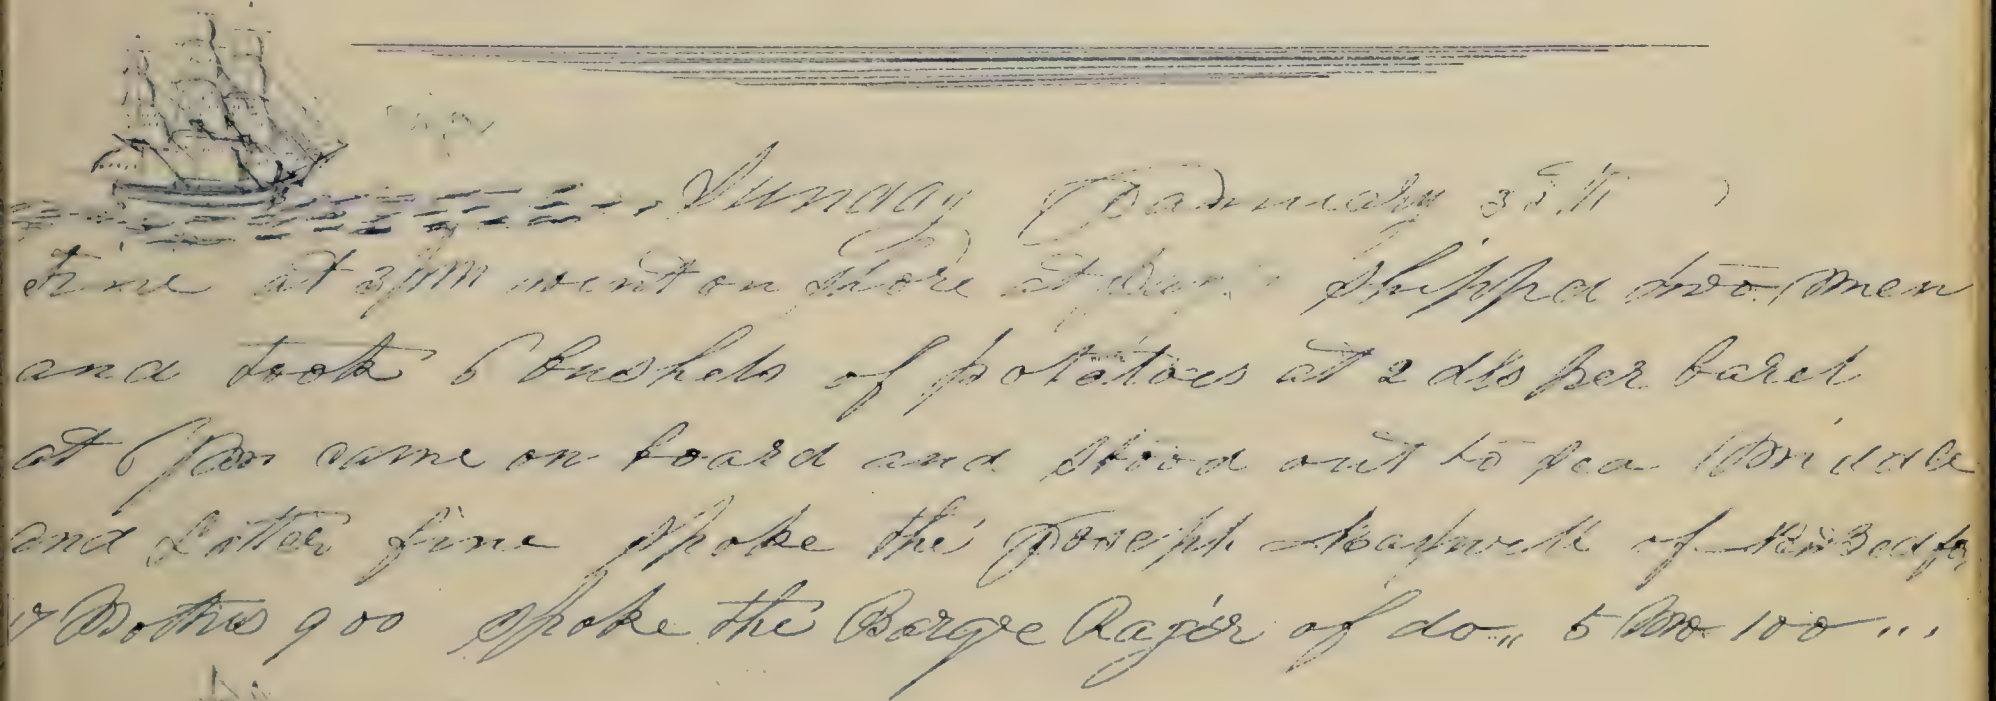 Sunday January
fine at 3 pm went on shore at shippd two men
and took 6 bushels of potatoes at 2 dls per barel
at 6 pm came on board and stood out to sea Middle
and Latter fine spoke the Joseph Maxwell of
17 Mothes 900 spoke the Barque Rajer of do,, 5 Mo 100 ...